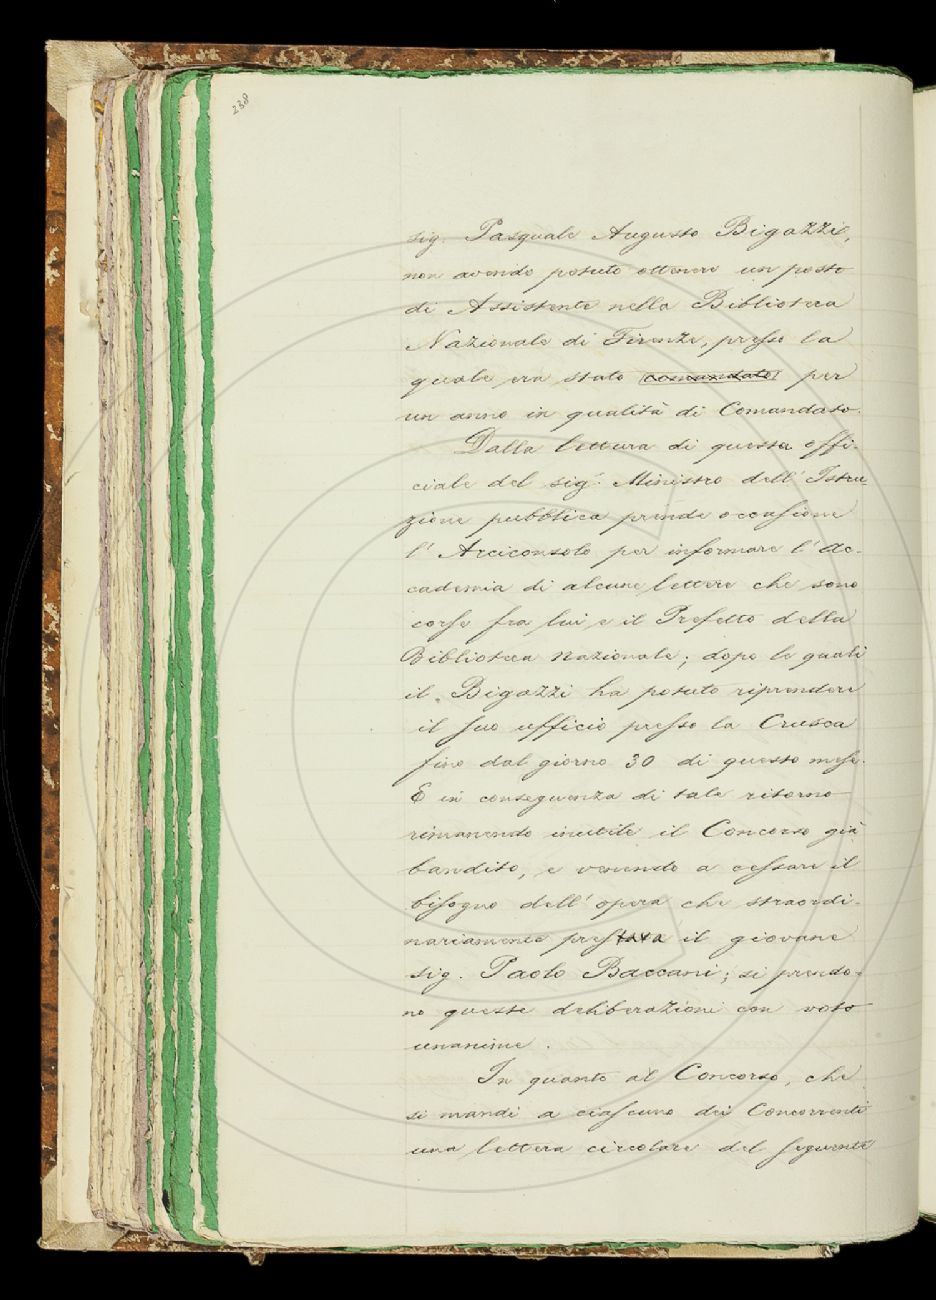 238
sig. Pasquale Augusto Bigazzi,
non avendo potuto ottenere un posto
di Assistente nella Biblioteca
Nazionale di Firenze, presso la
quale era stato comandato per
un anno in qualità di Comandato.
Dalla lettura di questa offi-
ciale del sig.r Ministro dell' Istru
zione pubblica prende occasione
l' Arciconsolo per informare l' Ac-
cademia di alcune lettere che sono
corse fra lui e il Prefetto della
Biblioteca Nazionale; dopo le quali
il Bigazzi ha potuto riprendere
il suo ufficio presso la Crusca
fino dal giorno 30 di questo mese.
E in conseguenza di tale ritorno
rimanendo inutile il Concorso già
bandito, e venendo a cessare il
bisogno dell' opera che straordi-
nariamente prestava il giovane
sig. Paolo Baccani; si prendo-
no queste deliberazioni con voto
unanime.
In quanto al Concorso, che
si mandi a ciascuno dei Concorrenti
una lettera circolare del seguente